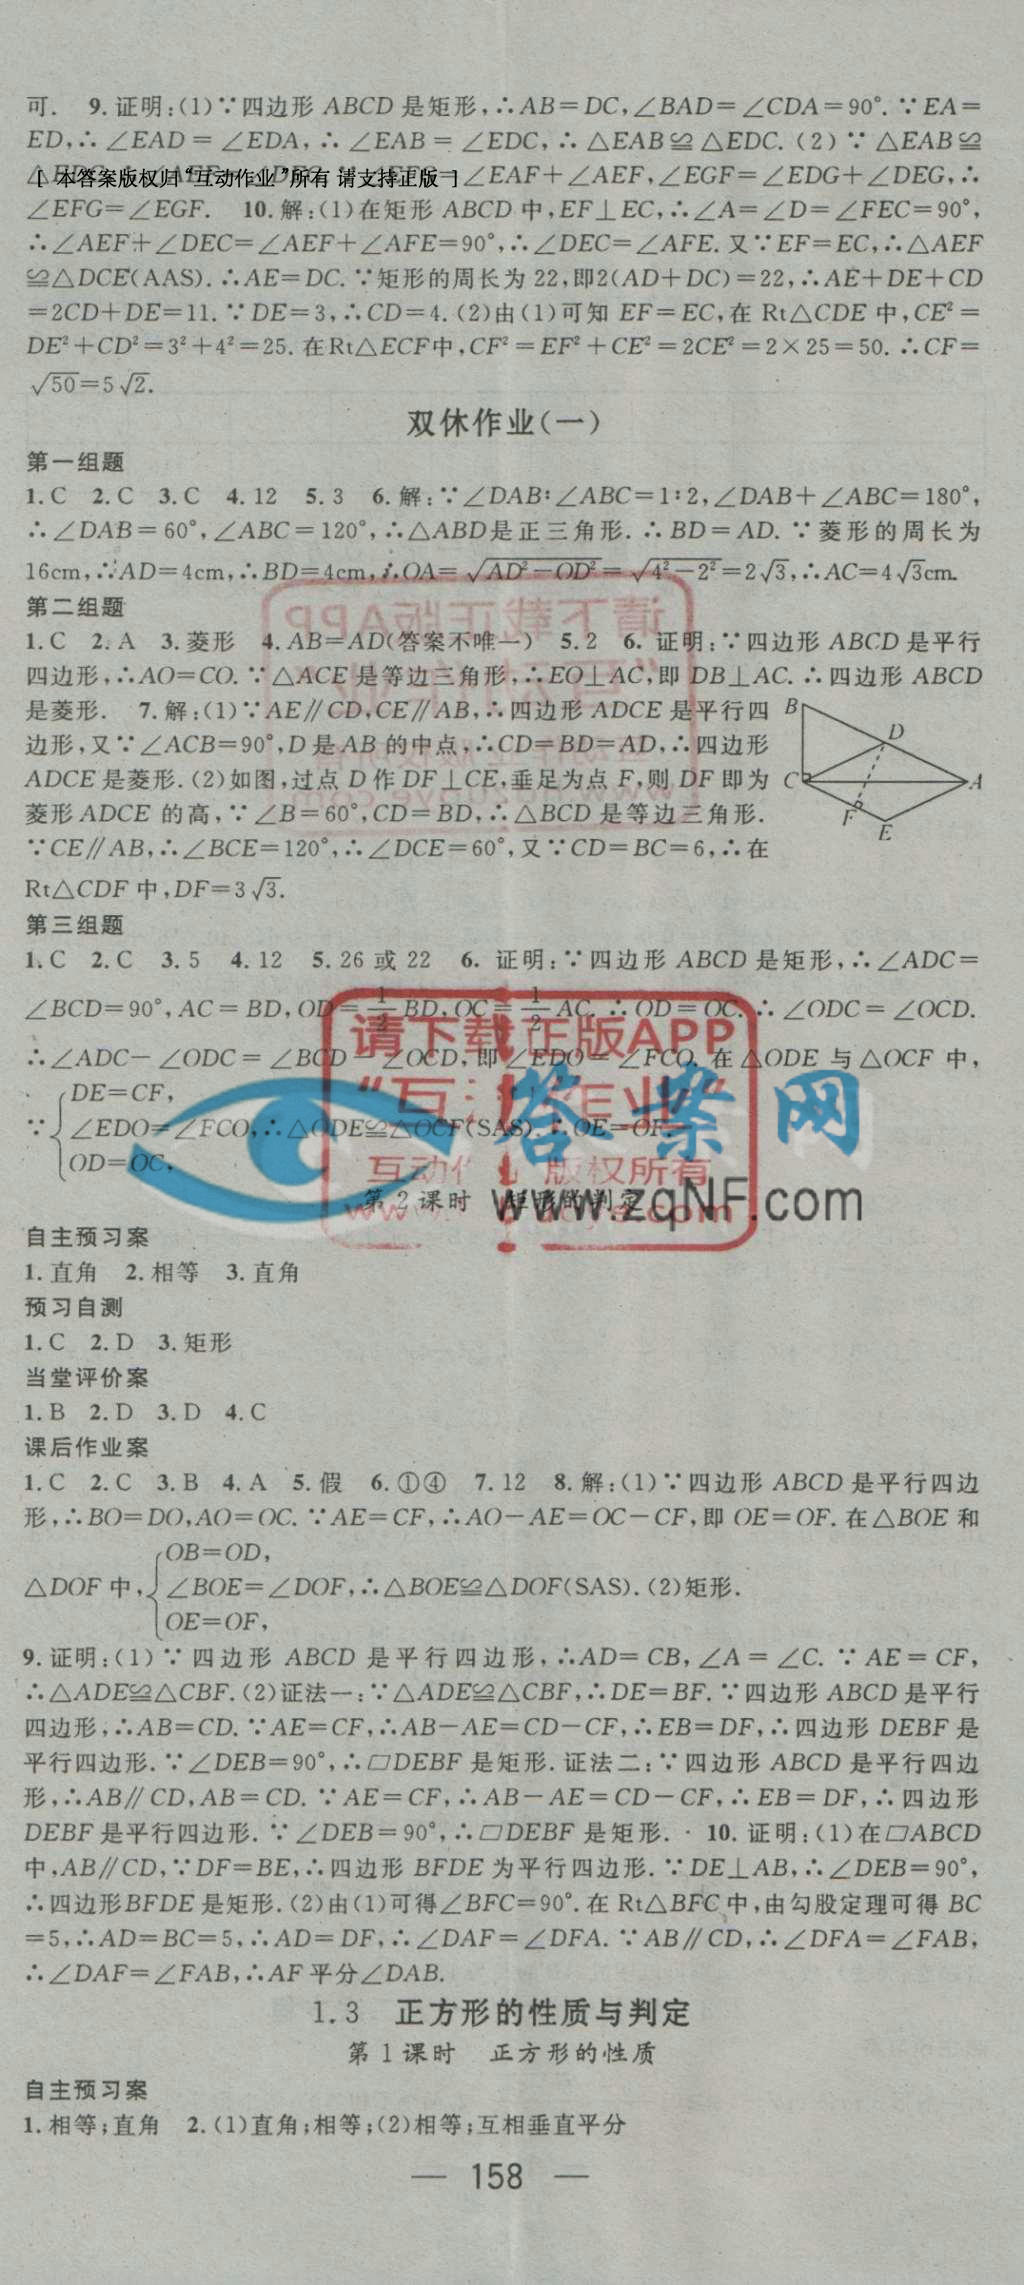 可. 9.证明:(1)∵四边形 ABCD 是矩形,∴AB=DC,∠BAD=∠CDA=90°.∵EA=
ED,∴∠EAD=∠EDA,∴∠EAB=∠EDC,∴△EAB≌△EDC.(2)∵△EAB≌
[ 本答案版权归“互动作业”所有 请支持正版 ]
=∠EAF+∠AEF,∠EGF=∠EDG+∠DEG,∴
∠EFG=∠EGF. 10.解:(1)在矩形 ABCD 中,EF⊥EC,∴∠A=∠D=∠FEC=90°,
∴∠AEF+∠DEC=∠AEF+∠AFE=90°,∴∠DEC=∠AFE.又∵EF=EC,∴△AEF
≌△DCE(AAS).∴AE=DC.∵矩形的周长为 22,即2(AD+DC)=22,∴AE+DE+CD
=2CD+DE=11.∵DE=3,∴CD=4.(2)由(1)可知 EF=EC,在 Rt△CDE 中,CE²=
DE²+CD²=3²+4²=25.在Rt△ECF中,CF²=EF²+CE²=2CE²=2×25=50.∴CF=
√50=5√2.
双休作业(一)
第一组题
1.C 2.C 3.C 4.12 5.3 6.解:∵∠DAB∶∠ABC=1∶2,∠DAB+∠ABC=180°,
∴∠DAB=60°,∠ABC=120°,∴△ABD是正三角形.∴BD=AD.∵菱形的周长为
16cm,∴AD=4cm,∴BD=4cm,∴OA=√AD²-OD²=√4²-2²=2√3,∴AC=4√3cm.
第二组题
1.C 2.A 3.菱形 4.AB=AD(答案不唯一) 5.2 6.证明:∵四边形 ABCD 是平行
四边形,∴AO=CO.∵△ACE 是等边三角形,∴EO⊥AC,即 DB⊥AC.∴四边形 ABCD
是菱形. 7.解:(1)∵AE∥CD,CE∥AB,∴四边形 ADCE 是平行四
边形,又∵∠ACB=90°,D 是 AB 的中点,∴CD=BD=AD,∴四边形
ADCE 是菱形.(2)如图,过点 D 作 DF⊥CE,垂足为点 F,则 DF 即为
菱形 ADCE 的高,∵∠B=60°,CD=BD,∴△BCD 是等边三角形.
∵CE∥AB,∴∠BCE=120°,∴∠DCE=60°,又∵CD=BC=6,∴在
Rt△CDF 中,DF=3√3.
B
D
C
A
F
E
第三组题
1.C 2.C 3.5 4.12 5.26 或 22 6. 证明:∵四边形 ABCD 是矩形,∴∠ADC=
∠BCD=90°,AC=BD,OD=1/2 BD,OC=1/2 AC.∴OD=OC.∴∠ODC=∠OCD.
∴∠ADC-∠ODC=∠BCD-∠OCD,即∠EDO=∠FCO.在△ODE 与△OCF 中,
DE=CF,
∵ ∠EDO=∠FCO,∴△ODE≌△OCF(SAS).∴OE=OF.
OD=OC,
请下载正版APP
答案网
www.zqNF.com
第 2 课时 矩形的判定
自主预习案
1.直角 2.相等 3.直角
预习自测
1.C 2.D 3.矩形
当堂评价案
1.B 2.D 3.D 4.C
课后作业案
1.C 2.C 3.B 4.A 5.假 6.①④ 7.12 8.解:(1)∵四边形 ABCD 是平行四边
形,∴BO=DO,AO=OC.∵AE=CF,∴AO-AE=OC-CF,即 OE=OF.在△BOE 和
OB=OD,
△DOF 中, ∠BOE=∠DOF,∴△BOE≌△DOF(SAS).(2)矩形.
OE=OF,
9.证明:(1)∵四边形 ABCD 是平行四边形,∴AD=CB,∠A=∠C.∵AE=CF,
∴△ADE≌△CBF.(2)证法一:∵△ADE≌△CBF,∴DE=BF.∵四边形 ABCD 是平行
四边形,∴AB=CD.∵AE=CF,∴AB-AE=CD-CF,∴EB=DF,∴四边形 DEBF 是
平行四边形.∵∠DEB=90°,∴▱DEBF 是矩形.证法二:∵四边形 ABCD 是平行四边
形,∴AB∥CD,AB=CD.∵AE=CF,∴AB-AE=CD-CF,∴EB=DF,∴四边形
DEBF 是平行四边形.∵∠DEB=90°,∴▱DEBF 是矩形. 10.证明:(1)在▱ABCD
中,AB∥CD,∵DF=BE,∴四边形 BFDE 为平行四边形.∵DE⊥AB,∴∠DEB=90°,
∴四边形BFDE 是矩形.(2)由(1)可得∠BFC=90°.在 Rt△BFC 中,由勾股定理可得 BC
=5,∴AD=BC=5,∴AD=DF,∴∠DAF=∠DFA.∵AB∥CD,∴∠DFA=∠FAB,
∴∠DAF=∠FAB,∴AF 平分∠DAB.
1.3 正方形的性质与判定
第 1 课时 正方形的性质
自主预习案
1.相等;直角 2.(1)直角;相等;(2)相等;互相垂直平分
— 158 —